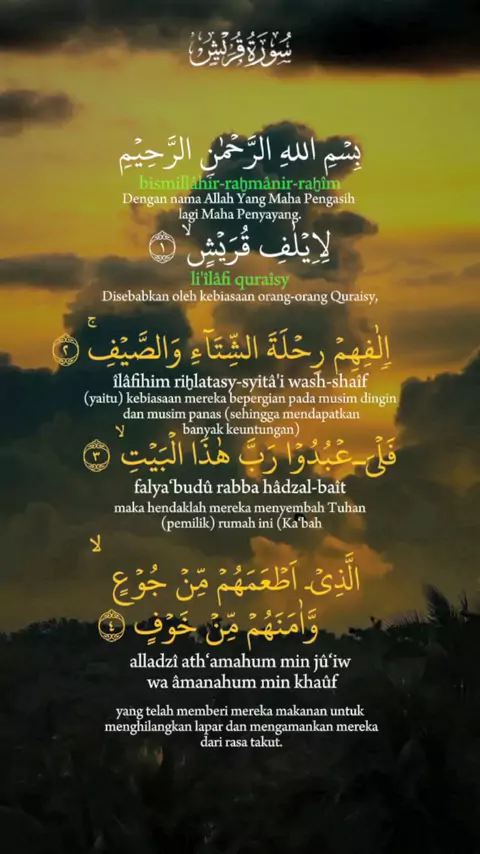 سُورَةُ قُرَيْشٍ
بِسْمِ اللهِ الرَّحْمٰنِ الرَّحِيْمِ
bismillâhir-raḫmânir-raḫîm
Dengan nama Allah Yang Maha Pengasih
lagi Maha Penyayang.
لِاِيْلٰفِ قُرَيْشٍۙ ١
li'îlâfi quraîsy
Disebabkan oleh kebiasaan orang-orang Quraisy,
اِلٰفِهِمْ رِحْلَةَ الشِّتَاۤءِ وَالصَّيْفِۚ ٢
îlâfihim riḫlatasy-syitâ'i wash-shaîf
(yaitu) kebiasaan mereka bepergian pada musim dingin
dan musim panas (sehingga mendapatkan
banyak keuntungan)
فَلْيَـعْبُدُوْا رَبَّ هٰذَا الْبَيْتِۙ ٣
falya‘budû rabba hâdzal-baît
maka hendaklah mereka menyembah Tuhan
(pemilik) rumah ini (Ka‘bah
الَّذِيْٓ اَطْعَمَهُمْ مِّنْ جُوْعٍۙ
وَّاٰمَنَهُمْ مِّنْ خَوْفٍ ٤
alladzî ath‘amahum min jû‘iw
wa âmanahum min khaûf
yang telah memberi mereka makanan untuk
menghilangkan lapar dan mengamankan mereka
dari rasa takut.